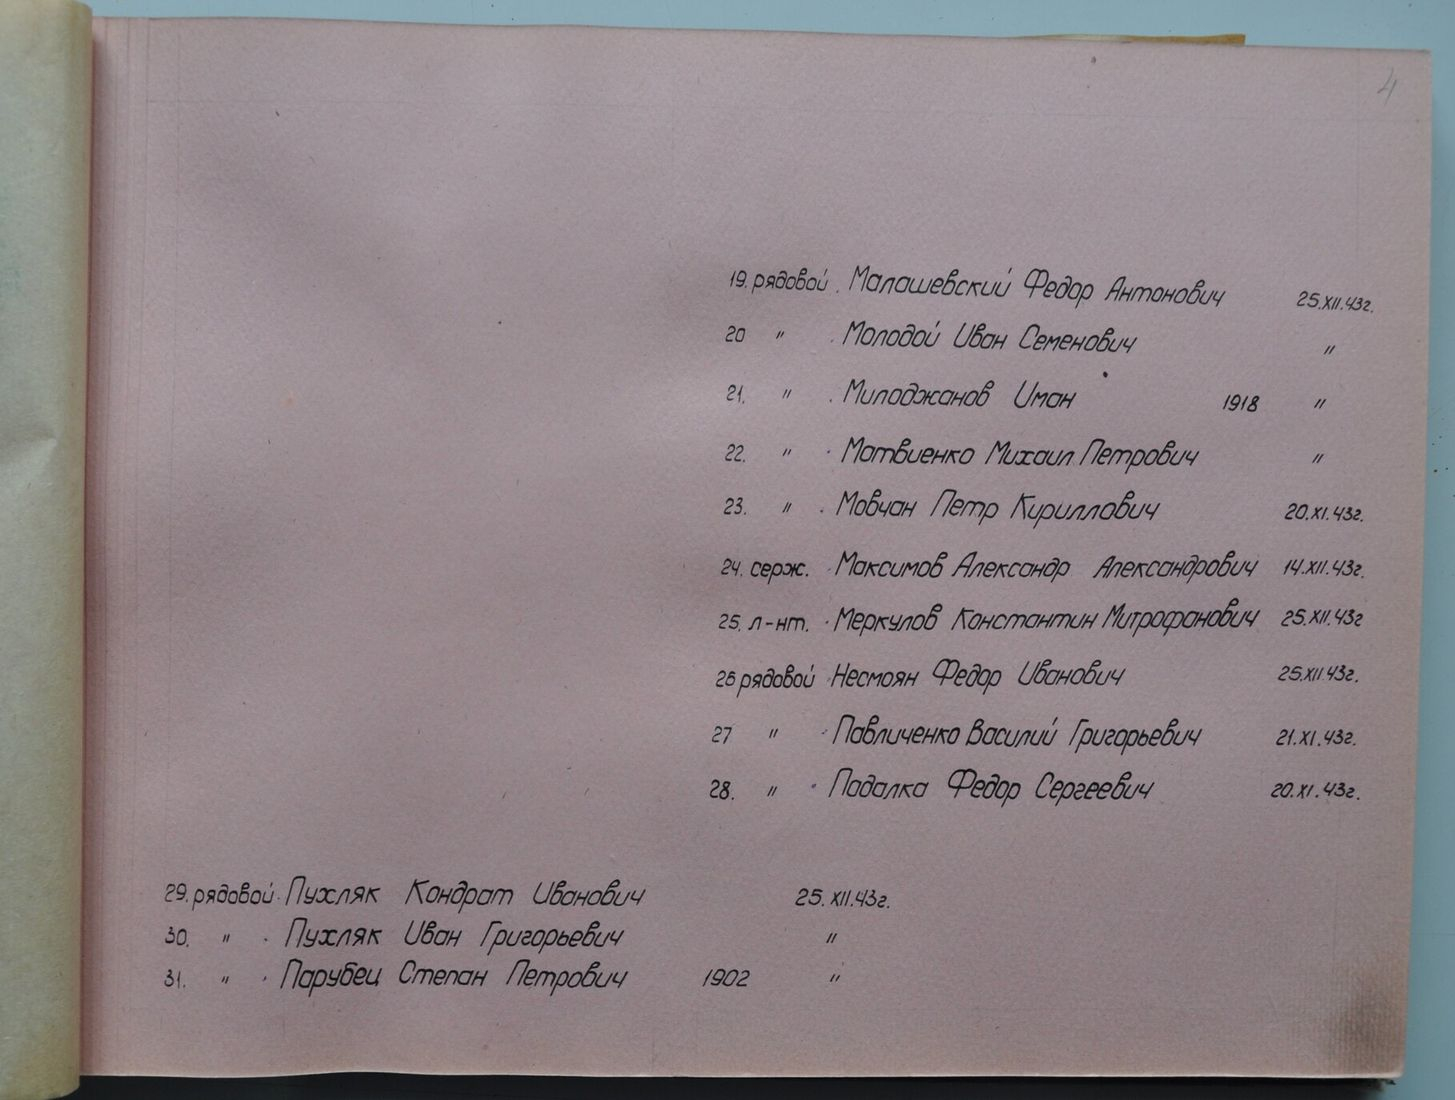 4
19. рядовой. Малашевский Федор Антонович 25.XII.43г.
20 " . Молодой Иван Семенович "
21. " . Милоджанов Иман 1918 "
22. " . Матвиенко Михаил Петрович "
23. " . Мовчан Петр Кириллович 20.XI.43г.
24. серж. Максимов Александр Александрович 14.XII.43г.
25. л-нт. Меркулов Константин Митрофанович 25.XII.43г
26 рядовой Несмоян Федор Иванович 25.XII.43г.
27 " Павличенко Василий Григорьевич 21.XI.43г.
28. " Падалка Федор Сергеевич 20.XI.43г.
29. рядовой. Пухляк Кондрат Иванович 25.XII.43г.
30. " . Пухляк Иван Григорьевич "
31. " . Парубец Степан Петрович 1902 "